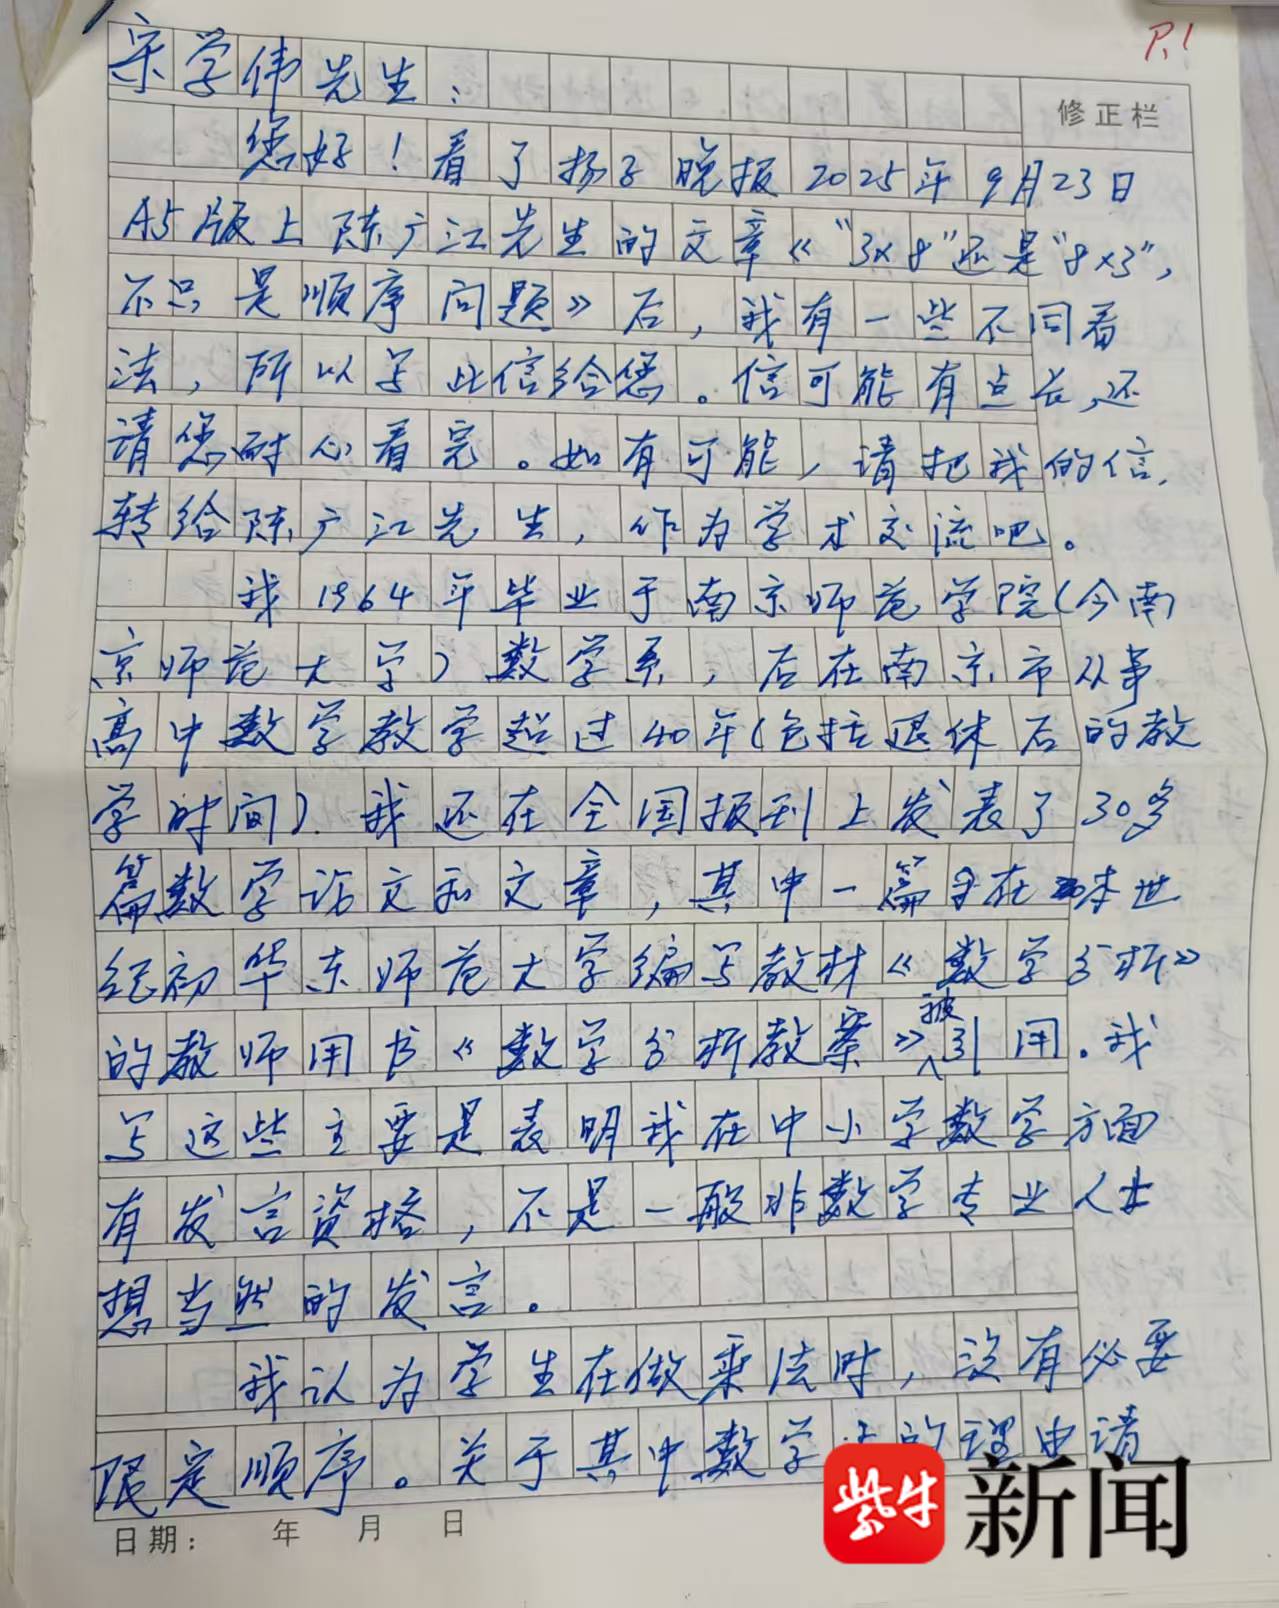 P.1
宋学伟先生:
修正栏
您好!看了扬子晚报2025年9月23日
A5版上陈广江先生的文章《“3×8”还是“8×3”,
不只是顺序问题》后,我有一些不同看
法,所以写此信给您。信可能有点长,还
请您耐心看完。如有可能,请把我的信
转给陈广江先生,作为学术交流吧。
我1964年毕业于南京师范学院(今南
京师范大学)数学系,后在南京市从事
高中数学教学超过40年(包括退休后的教
学时间)。我还在全国报刊上发表了30多
篇数学论文和文章,其中一篇在本世
纪初华东师范大学编写教材《数学分析》
的教师用书《数学分析教案》被引用。我
写这些主要是表明我在中小学数学方面
有发言资格,不是一般非数学专业人士
想当然的发言。
我认为学生在做乘法时,没有必要
限定顺序。关于其中数学上的理由请
日期: 年 月 日
紫牛
新闻